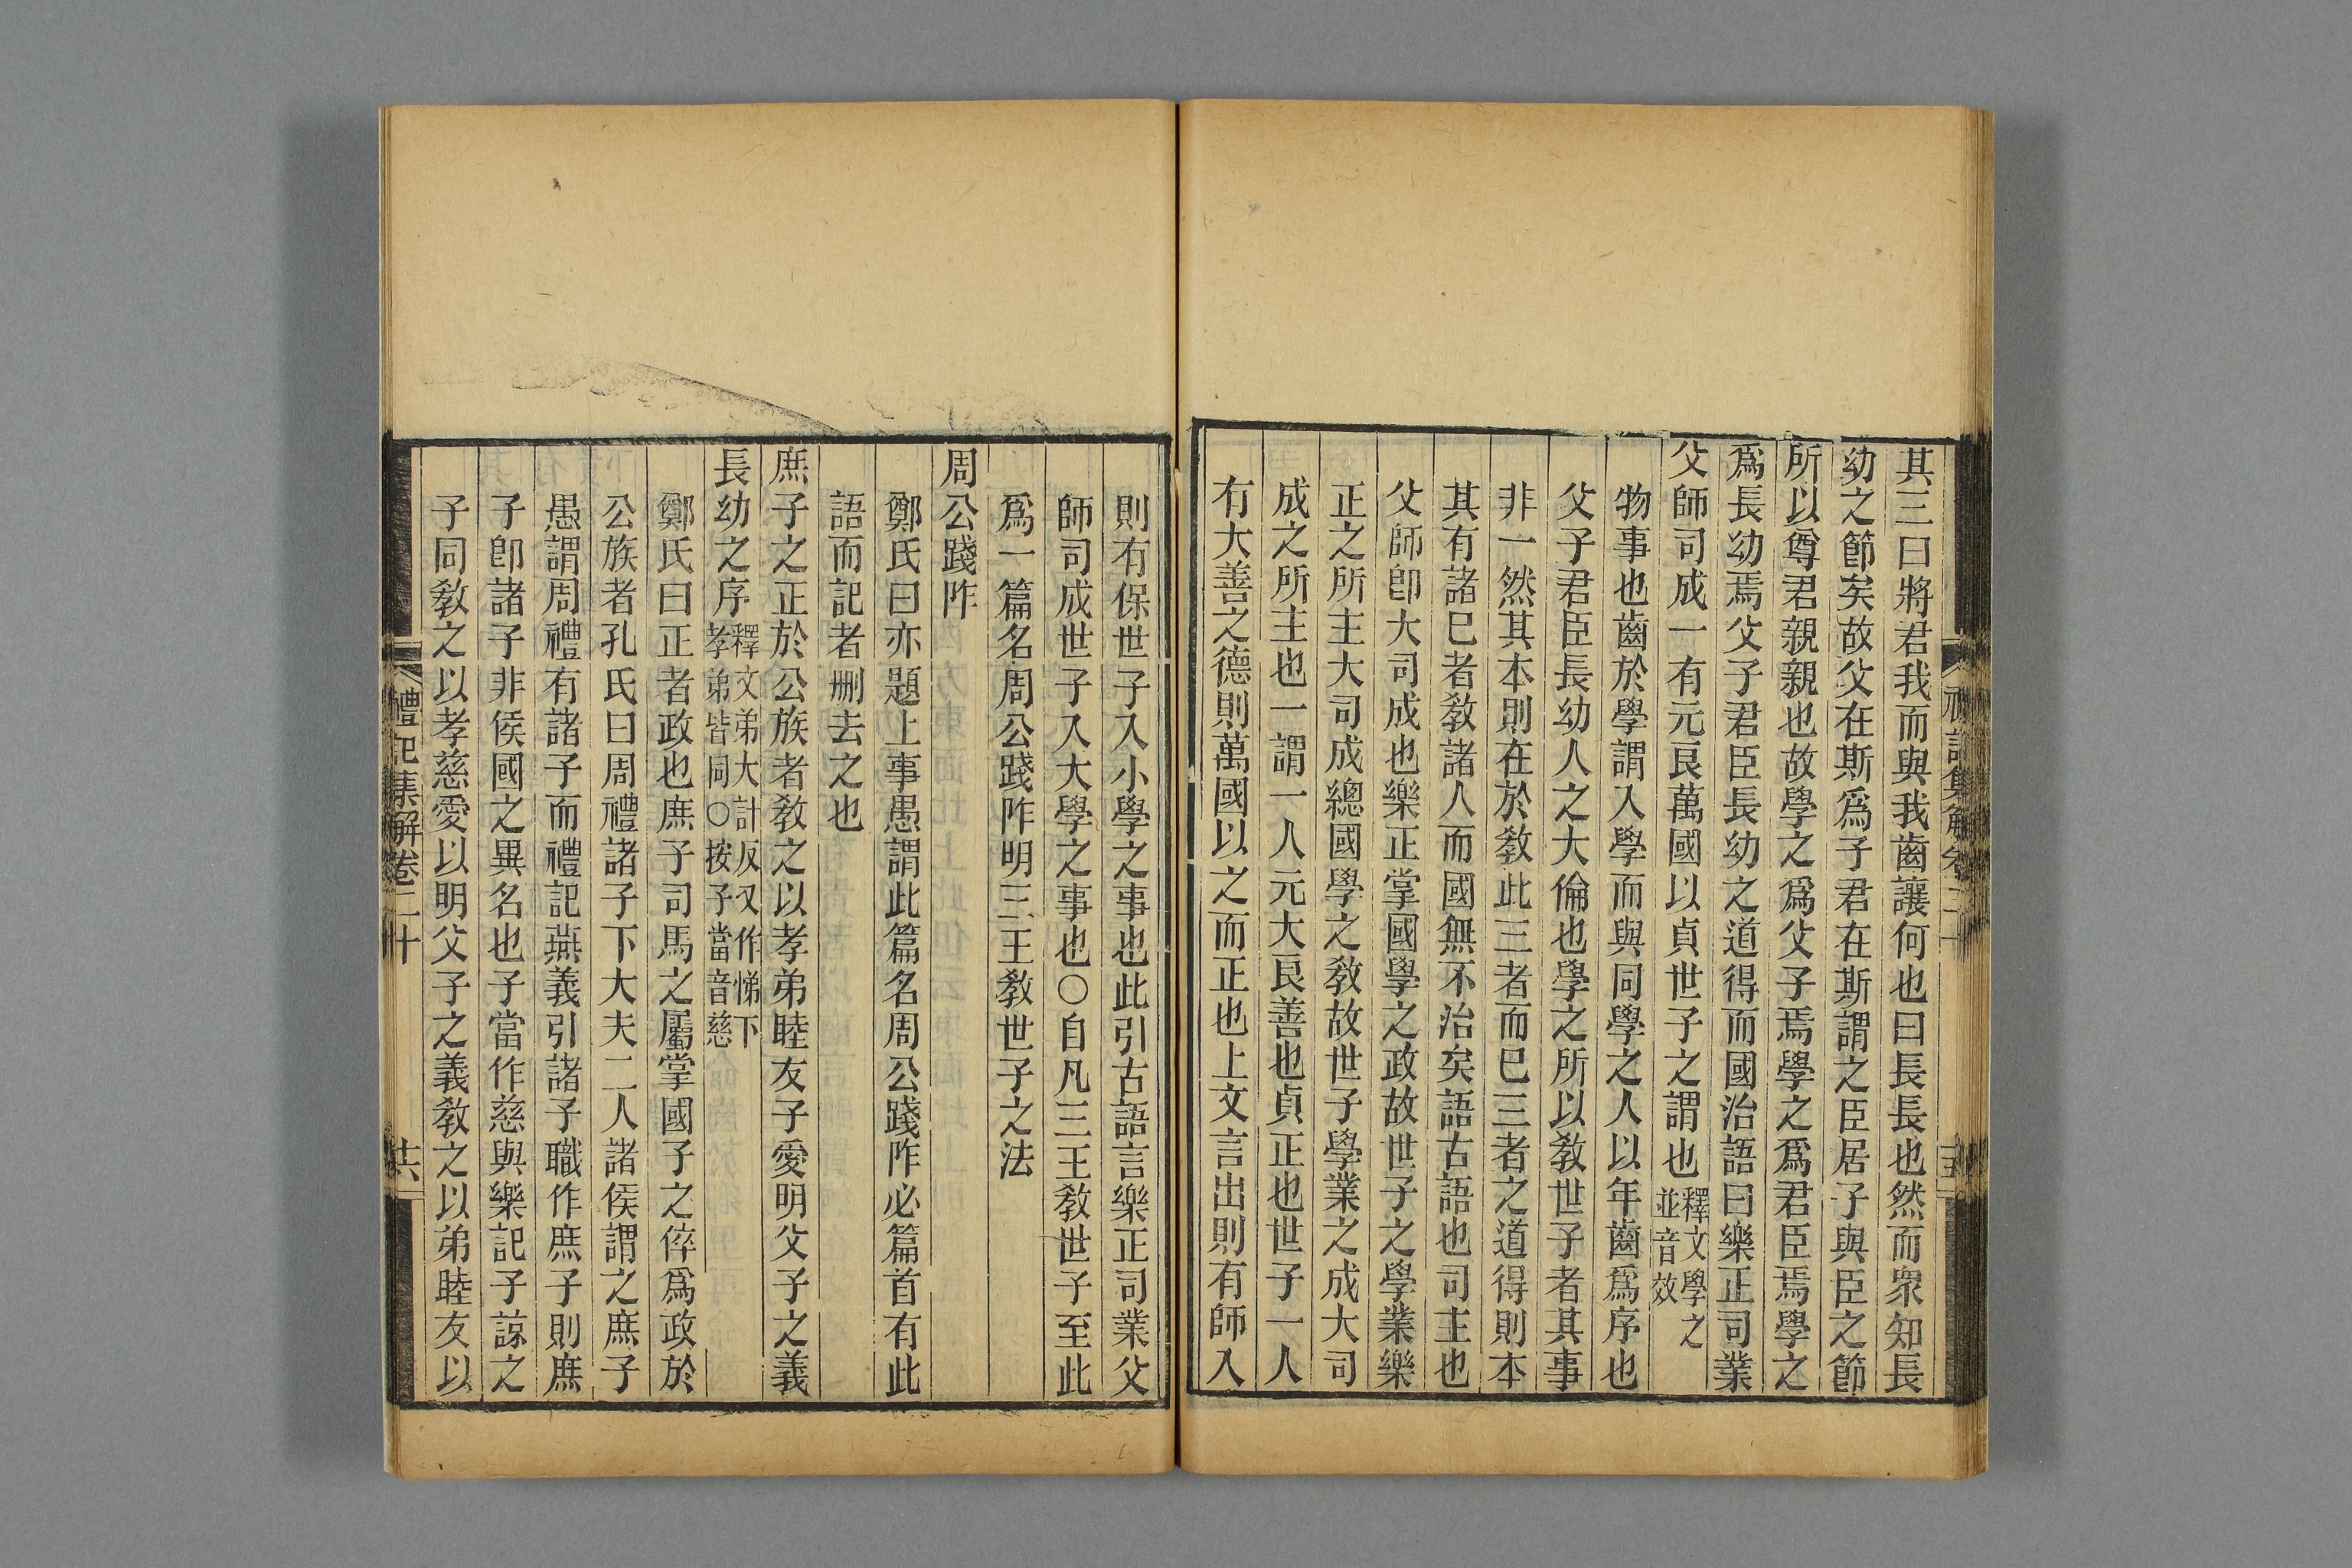 其三曰將君我而與我齒讓何也曰長長也然而眾知長
幼之節矣故父在斯爲子君在斯謂之臣居子與臣之節
所以尊君親親也故學之爲父子焉學之爲君臣焉學之
爲長幼焉父子君臣長幼之道得而國治語曰樂正司業
父師司成一有元良萬國以貞世子之謂也釋文學之並音效
物事也齒於學謂入學而與同學之人以年齒爲序也
父子君臣長幼人之大倫也學之所以教世子者其事
非一然其本則在於教此三者而已三者之道得則本
其有諸已者教諸人而國無不治矣語古語也司主也
父師卽大司成也樂正掌國學之政故世子之學業樂
正之所主大司成總國學之教故世子學業之成大司
成之所主也一謂一人元大良善也貞正也世子一人
有大善之德則萬國以之而正也上文言出則有師入
則有保世子入小學之事也此引古語言樂正司業父
師司成世子入大學之事也○自凡三王教世子至此
爲一篇名周公踐阼明三王教世子之法
周公踐阼
鄭氏曰亦題上事愚謂此篇名周公踐阼必篇首有此
語而記者刪去之也
庶子之正於公族者教之以孝弟睦友子愛明父子之義
長幼之序釋文弟大計反又作悌下孝弟皆同○按子當音慈
鄭氏曰正者政也庶子司馬之屬掌國子之倅爲政於
公族者孔氏曰周禮諸子下大夫二人諸侯謂之庶子
愚謂周禮有諸子而禮記燕義引諸子職作庶子則庶
子卽諸子非侯國之異名也子當作慈與樂記子諒之
子同教之以孝慈愛以明父子之義教之以弟睦友以
禮記集解卷二十
共